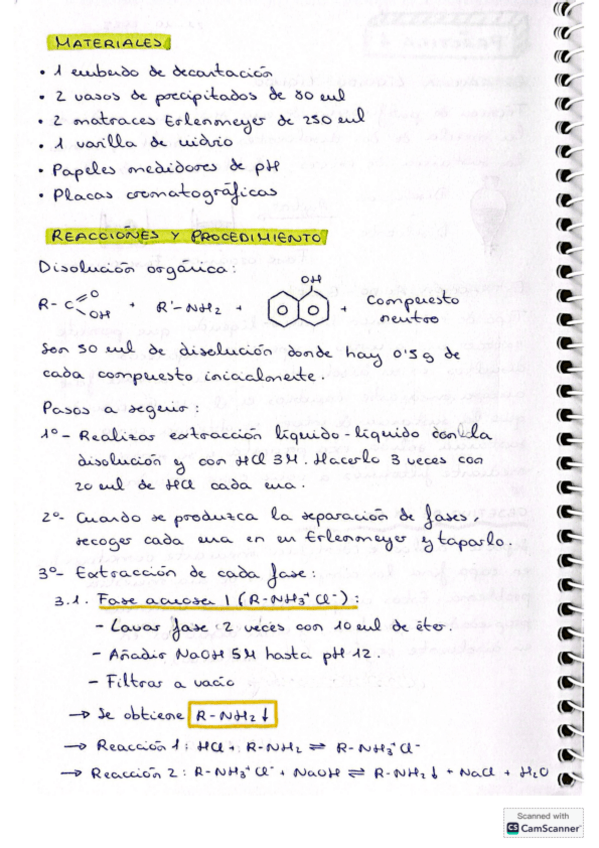 MATERIALES
• 1 embudo de decantación
• 2 vasos de precipitados de 80 ml
• 2 matraces Erlenmeyer de 250 ml
• 1 varilla de vidrio
• Papeles medidores de pH
• Placas cromatográficas
REACCIONES Y PROCEDIMIENTO
Disolución orgánica:
OH
R-C=O OH + R'-NH2 + + Compuesto neutro
Son 50 ml de disolución donde hay 0'5 g de
cada compuesto inicialmente.
Pasos a seguir:
1º- Realizar extracción líquido-líquido con la
disolución y con HCl 3M. Hacerlo 3 veces con
20 ml de HCl cada una.
2º- Cuando se produzca la separación de fases,
recoger cada una en un Erlenmeyer y taparlo.
3º- Extracción de cada fase:
3.1. Fase acuosa 1 (R-NH3+Cl-):
- Lavar fase 2 veces con 10 ml de éter.
- Añadir NaOH 5M hasta pH 12.
- Filtrar a vacío
→ Se obtiene R-NH2↓
→ Reacción 1: HCl + R-NH2 ⇌ R-NH3+Cl-
→ Reacción 2: R-NH3+Cl- + NaOH ⇌ R-NH2↓ + NaCl + H2O
Scanned with
CS CamScanner